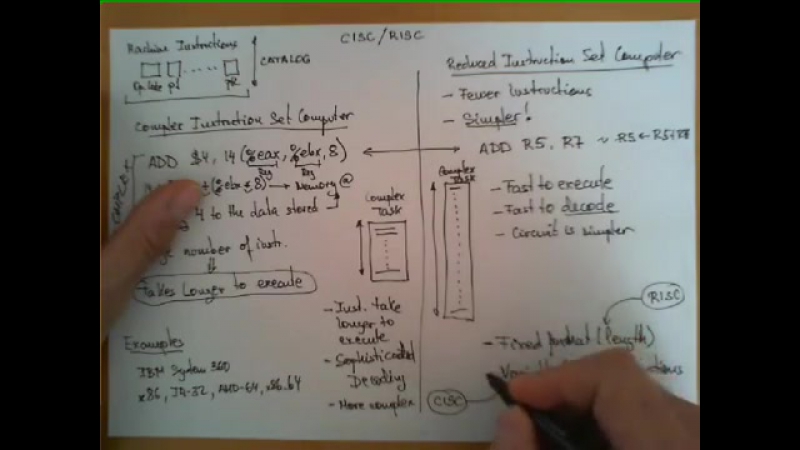 CISC/RISC
Machine Instructions
Op. Code p1 ..... pR
CATALOG
Complex Instruction Set Computer
ADD $4, 14(%eax, %ebx, 8)
Reg Reg
(%ebx * 8) → Memory @
4 to the data stored
number of instr.
takes Longer to execute
Examples
IBM System 360
x86, IA-32, AMD-64, x86-64
Complex
Task
- Inst. take
longer to
execute
- Sophisticated
Decoding
- More complex
Reduced Instruction Set Computer
- Fewer Instructions
- Simpler!
ADD R5, R7 ~ R5 ← R5+R7
Complex
Task
- Fast to execute
- Fast to decode
- Circuit is simpler
RISC
- Fixed format (length)
CISC